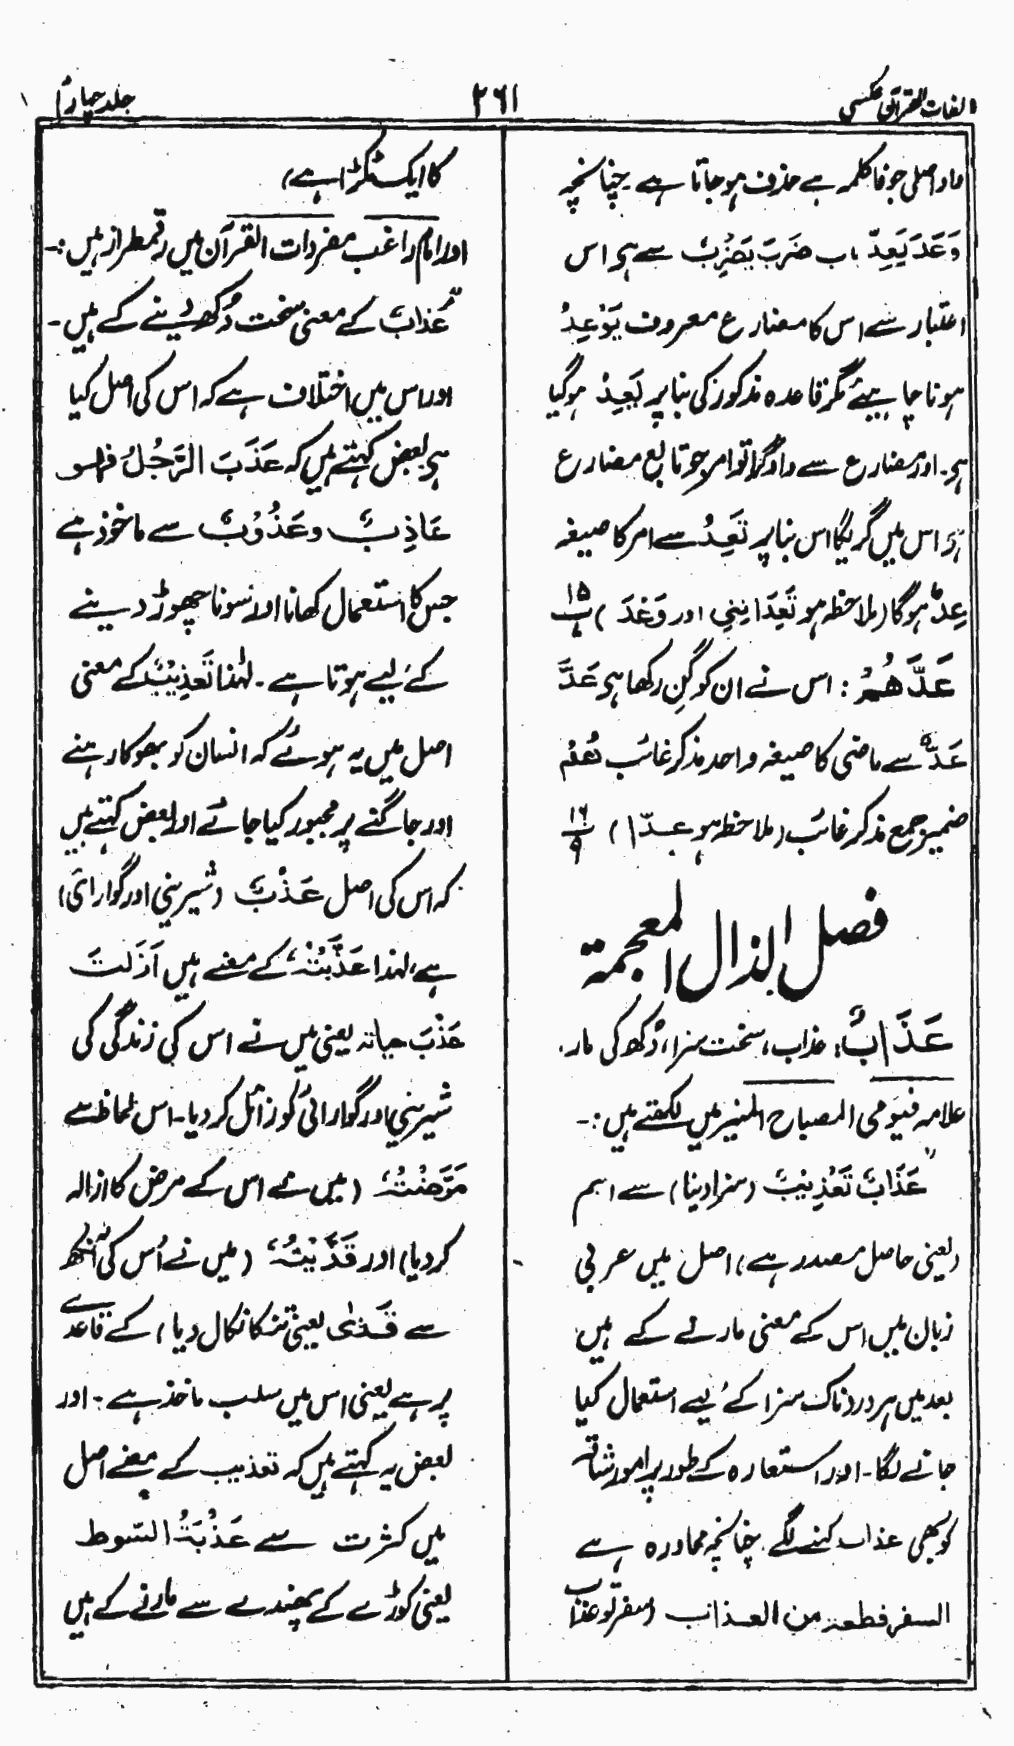 لغات القرآن عکسی
۲۶۱
جلد چہارم
ماد اصلی جو فا کلمہ ہے حذف ہو جاتا ہے۔ چنانچہ
وَعَدَ یَعِدُ باب ضَرَبَ یَضْرِبُ سے ہی اس
اعتبار سے اس کا مضارع معروف یَوْعِدُ
ہونا چاہیئے مگر قاعدہ مذکور کی بنا پر یَعِدُ ہو گیا
ہی۔ اور مضارع سے واؤ گرا تو امر جو تابع مضارع
ہے اس میں گریگا اس بنا پر تَعِدُ سے امر کا صیغہ
عِدْ ہوگا (ملاحظہ ہو تَعِدَانِنِی اور وَعْدَ) ۱۵
عَدَّهُمْ: اس نے ان کو گِن رکھا ہی عَدَّ
عَدٌّ سے ماضی کا صیغہ واحد مذکر غائب ھُمْ
ضمیر جمع مذکر غائب (ملاحظہ ہو عدّا) ۱۶/۹
فصل الذال المعجمة
عَذَابٌ: عذاب، سخت سزا، دُکھ کی مار۔
علامہ فیومی المصباح المنیر میں لکھتے ہیں:۔
"عَذَابٌ تَعْذِیْبٌ (سزا دینا) سے اسم
(یعنی حاصل مصدر ہے) اصل میں عربی
زبان میں اس کے معنی مارنے کے ہیں
بعد میں ہر دردناک سزا کے لیے استعمال کیا
جانے لگا۔ اور استعارہ کے طور پر امور شاقہ
کو بھی عذاب کہنے لگے چنانچہ محاورہ ہے
السفر قطعۃ من العذاب (سفر تو عذاب
کا ایک ٹکڑا ہے)
اور امام راغب مفردات القرآن میں رقمطراز ہیں:۔
"عَذابٌ کے معنی سخت دُکھ دینے کے ہیں۔
اور اس میں اختلاف ہے کہ اس کی اصل کیا
ہی بعض کہتے ہیں کہ عَذَبَ الرَّجُلُ فہو
عَاذِبٌ وعَذُوْبٌ سے ماخوذ ہے
جس کا استعمال کھانا اور سونا چھوڑ دینے
کے لیے ہوتا ہے۔ لہٰذا تَعْذِیْبٌ کے معنی
اصل میں یہ ہوئے کہ انسان کو بھوکا رہنے
اور جاگنے پر مجبور کیا جائے اور بعض کہتے ہیں
کہ اس کی اصل عَذْبٌ (شیرینی اور گوارائی)
ہے، لہٰذا عَذَّبْتُہٗ کے معنے ہیں اَزَلْتُ
عَذْبَ حیاتہ یعنی میں نے اس کی زندگی کی
شیرینی اور گوارائی کو زائل کر دیا۔ اس لحاظ سے
مَرَّضْتُہٗ (میں نے اس کے مرض کا ازالہ
کر دیا) اور قَذَّیْتُہٗ (میں نے اُس کی آنکھ
سے قَذٰی یعنی تنکا نکال دیا) کے قاعدے
پر ہے یعنی اس میں سلب ماخذ ہے۔ اور
بعض یہ کہتے ہیں کہ تعذیب کے معنے اصل
میں کثرت سے عَذَبَۃُ السَّوط
یعنی کوڑے کے پھندے سے مارنے کے ہیں